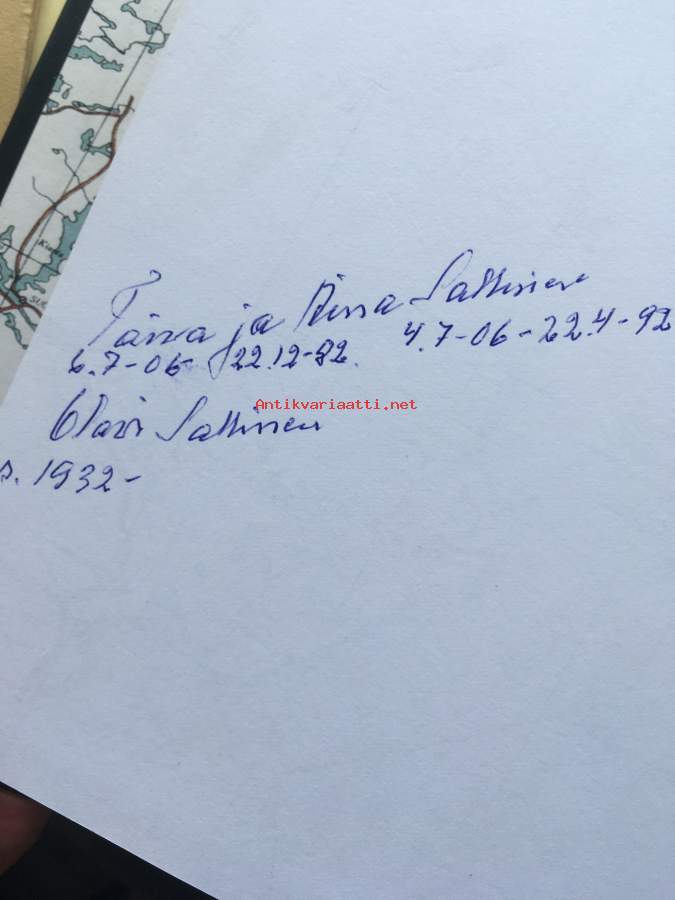 ja Sallinen
6.7-06 22.12-82. 4.7-06-22.4-92
Antikvariaatti.net
Olavi Sallinen
s. 1932-